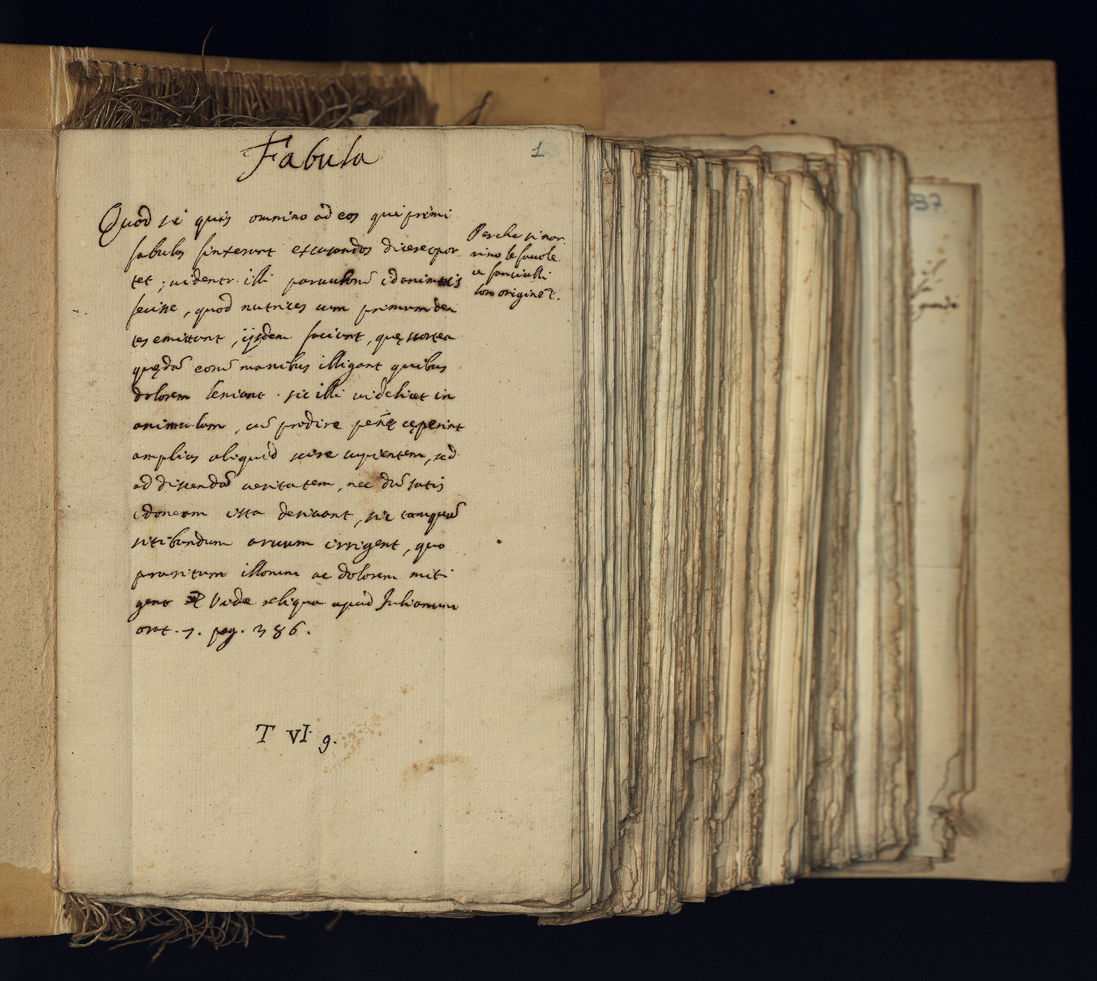 Fabula
1
Quod si quis omnino ad eos qui primi
fabulas finxerunt excusandos dicere opor
tet; uidentr. illi paruulorũ idonimis
fecisse, quod nutrices cum primum den
tes emittunt, ijsdem faciunt, quę scortea
quędã eorũ manibus illigant quibus
dolorem leniant. sic illi uidelicet in
animulam, cũ prodire pennę cęperint
amplius aliquid scire cupientem, sed
ad discendã ueritatem, nec dũ satis
idoneam ista deriuant, sic tamquã
sitibundum aruum irrigent, quo
pruritum illorum ac dolorem miti
gent Vide reliqua apud Julianum
orat. 7. pag. 386.
Perche si nor
rino le fauole
a fanciulli
loro origine etc.
T VI 9.
37